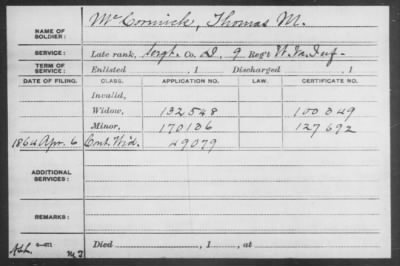 NAME OF SOLDIER: McCormick, Thomas M.
SERVICE: Late rank, Sergt. Co. D, 9 Reg't W. Va. Inf.
TERM OF SERVICE: Enlisted , 1 Discharged , 1
DATE OF FILING. CLASS. APPLICATION NO. LAW. CERTIFICATE NO.
Invalid,
Widow, 132548 100349
Minor, 170136 127692
1864 Apr. 6 Cont. Wid. 49079
ADDITIONAL SERVICES:
REMARKS:
Died , 1 , at